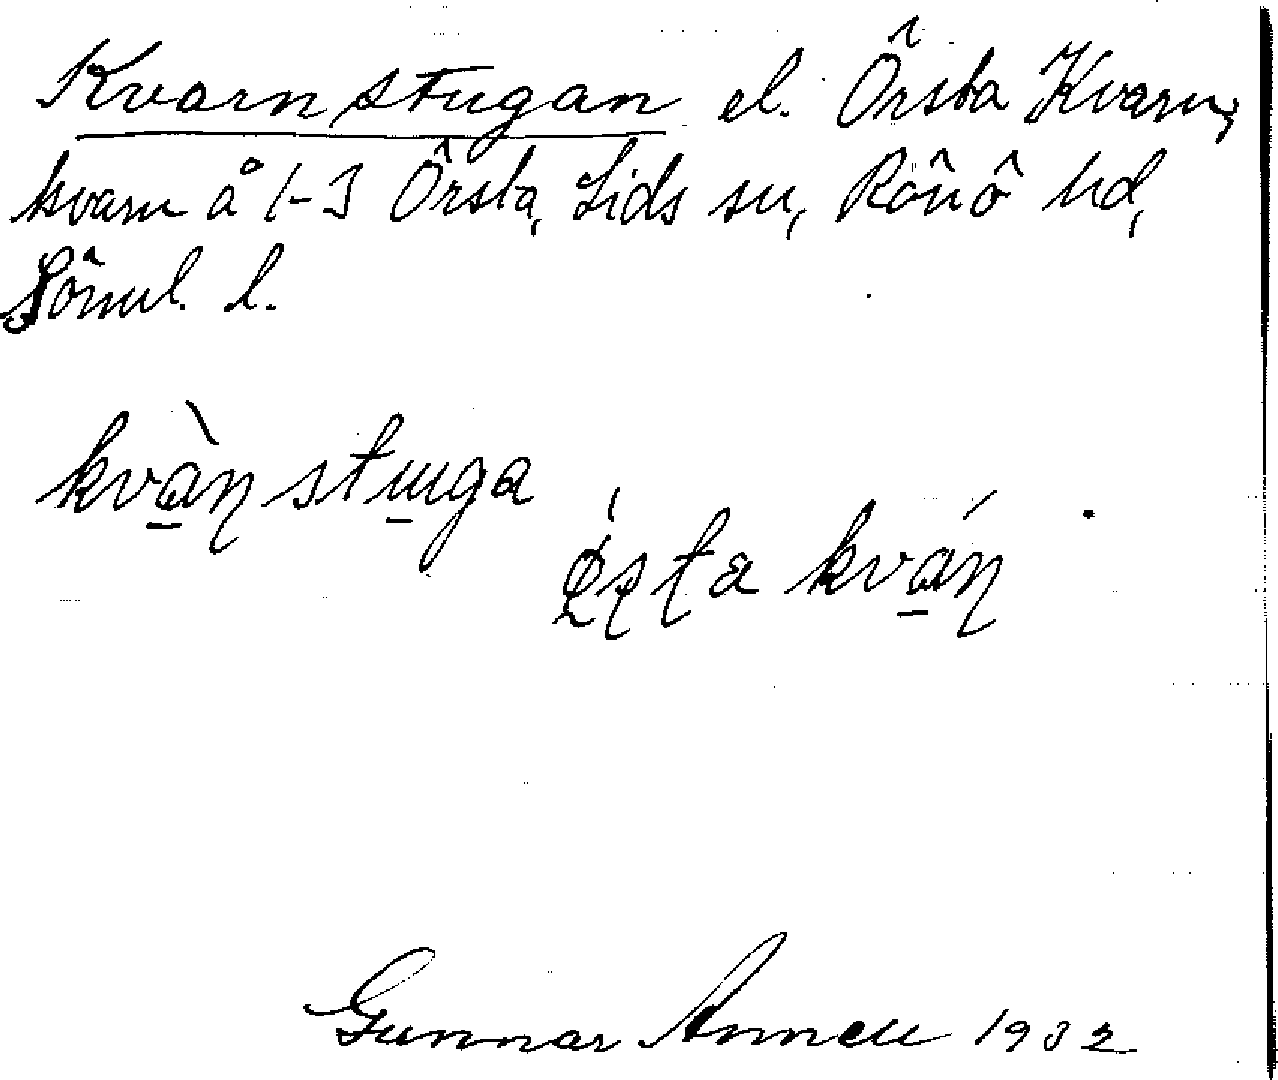 Kvarnstugan el. Örsta Kvarn,
kvarn å 1-3 Örsta, Lids sn, Rönö hd,
Sörml. l.
kvàn̠stuga
ǿsta kván
Gunnar Annell 1932